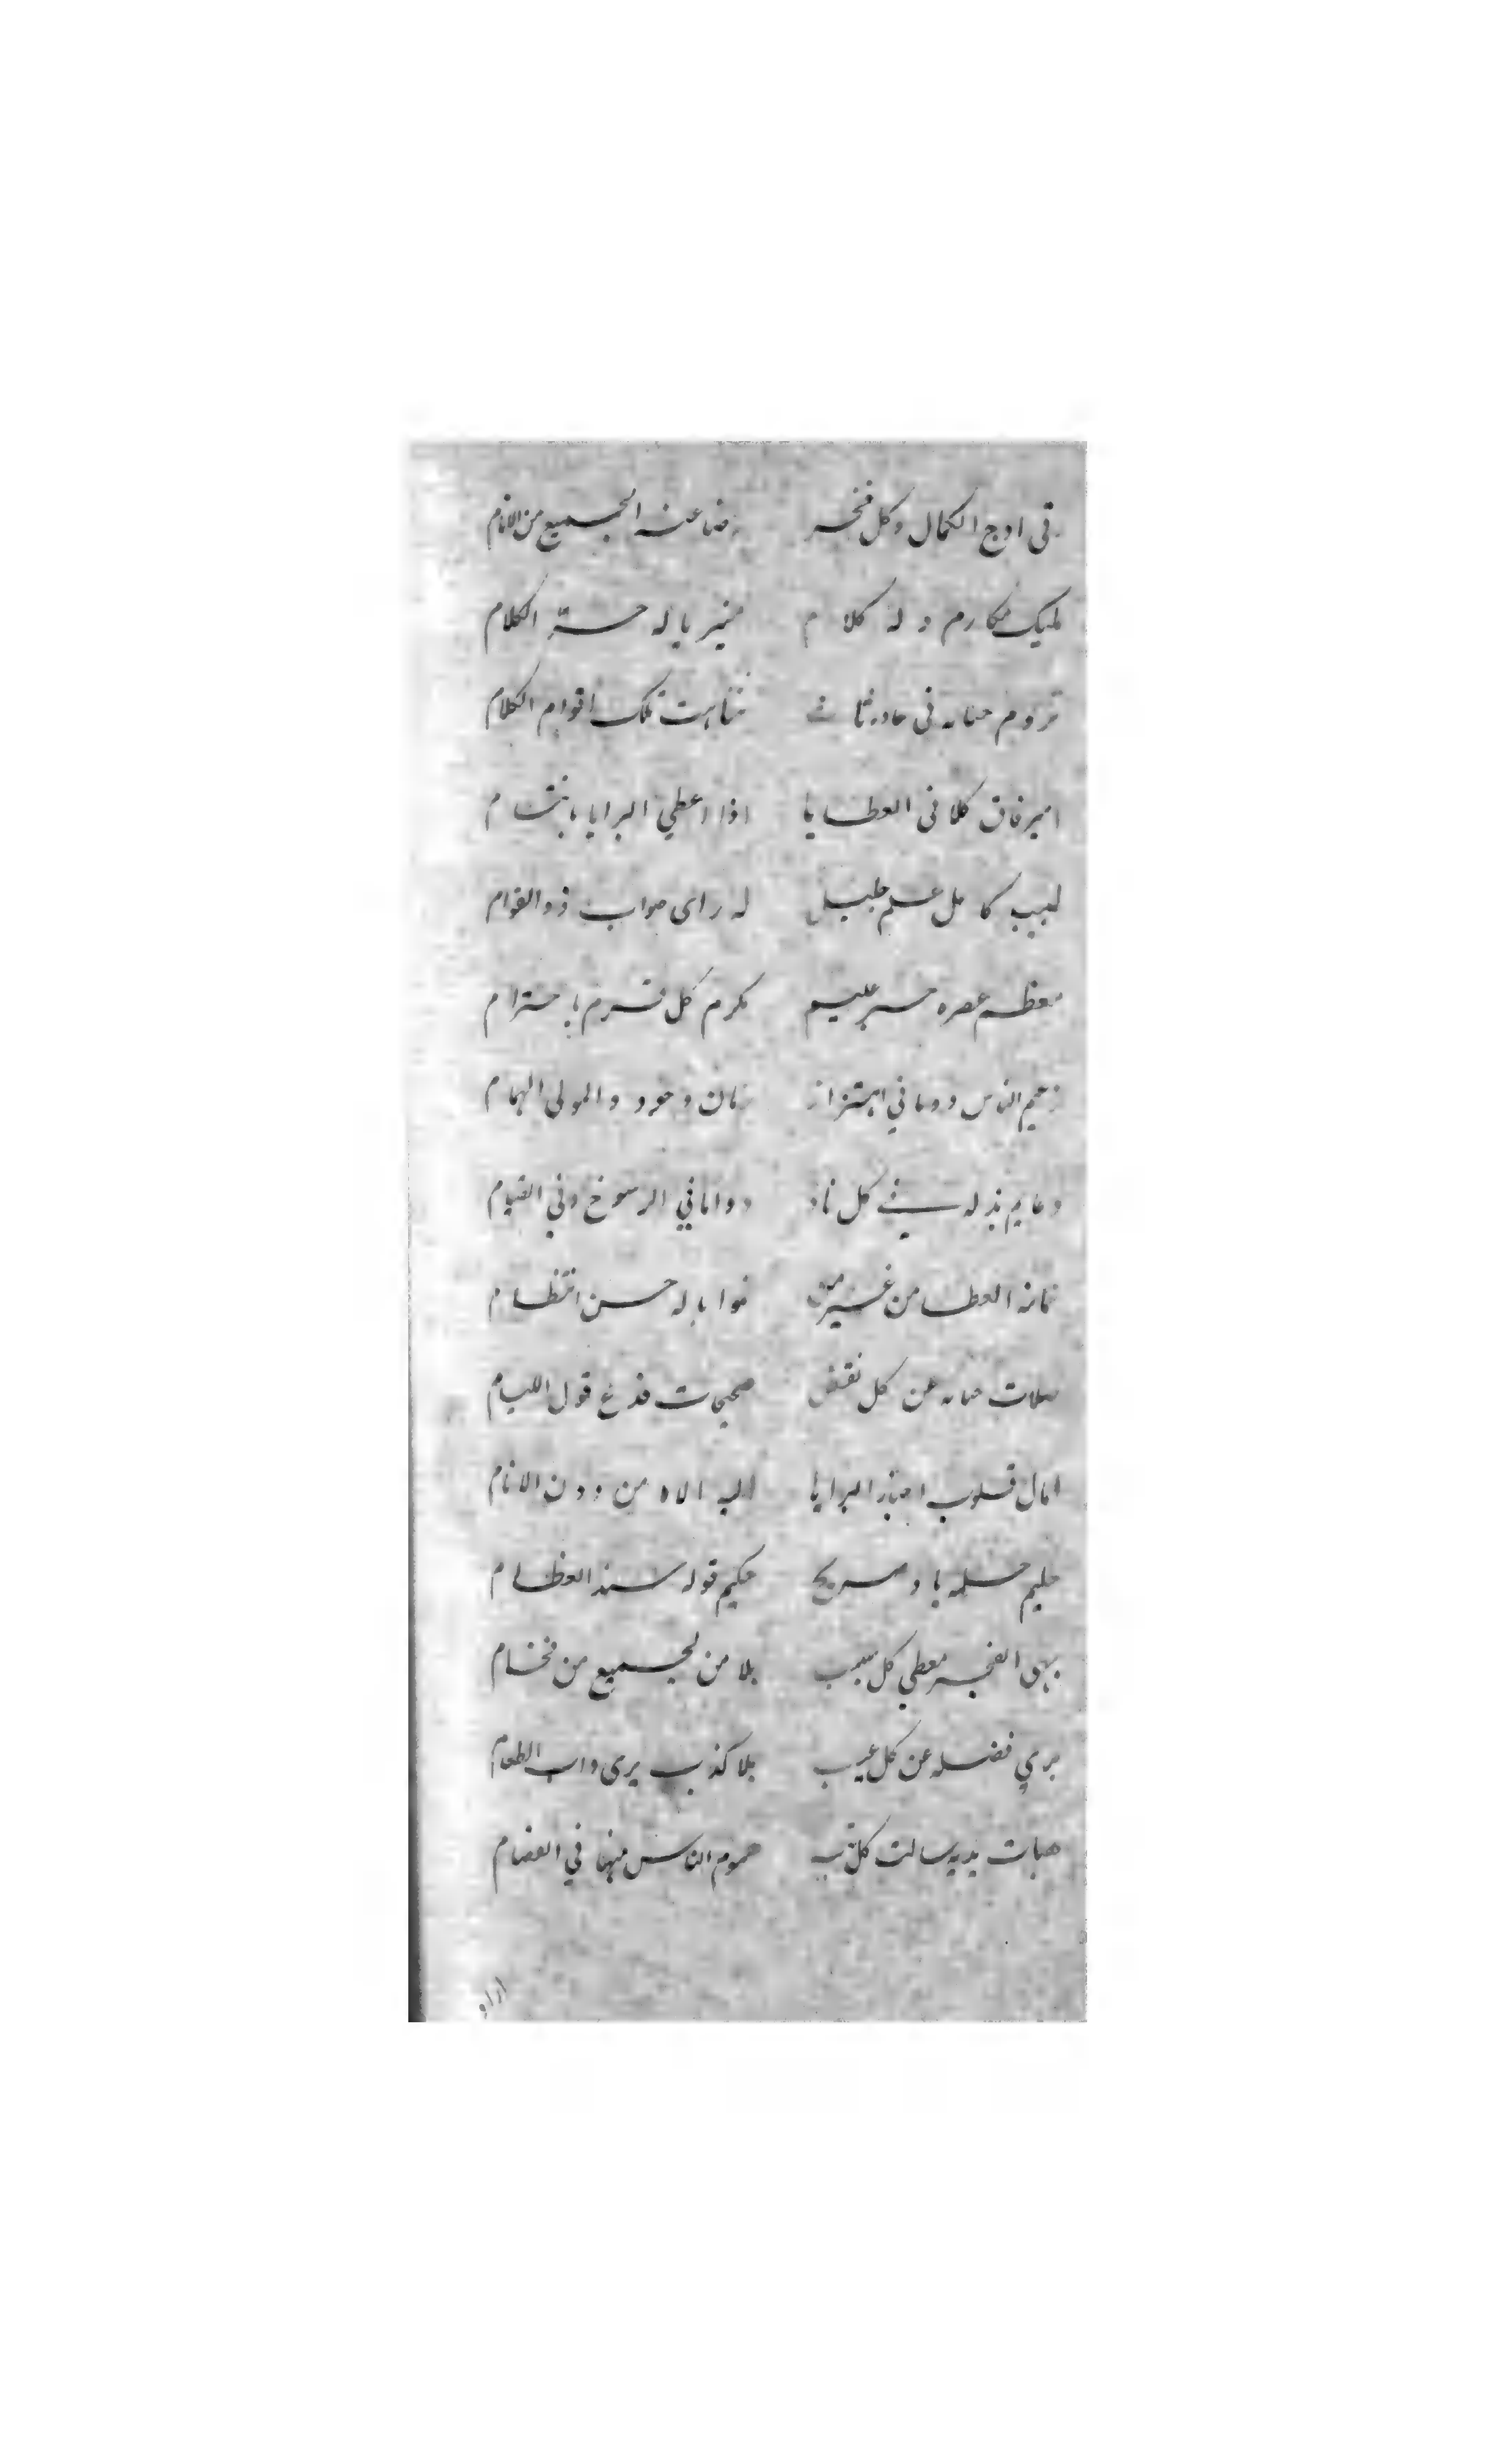 رقى اوج الكمال وكل فخر رضا عنه الجميع من الانام
مليك مكارم وله كلام منير ياله حسن الكلام
تروم جنابه في تناهت تلك اقوام الكلام
امير فاق كلا في العطايا اذا اعطي البرايا بابتسام
لبيب كامل علم جليل له راى صواب ذو القوام
معظم عصره حبر عليم مكرم كل قرم باحترام
زعيم الناس دوما في اهتزاز زمان وجود والمولى الهمام
دعايم بذله في كل ناد دواما في الرسوخ وفي القيام
العطا من غير من حسن انتظام
صلات جنابه عن كل نقض صحيحات فدع قول الليام
امال قلوب البرايا اليه الاه من دون الانام
حليم حلمه باد صريح حكيم قوله سند العظام
بهى الفخر معطي كل سيب بلا من لجميع من فخام
بري فضله عن كل عيب بلا كذب يرى داب الطعام
هبات يديه سالت كل هموم الناس منها في انفصام